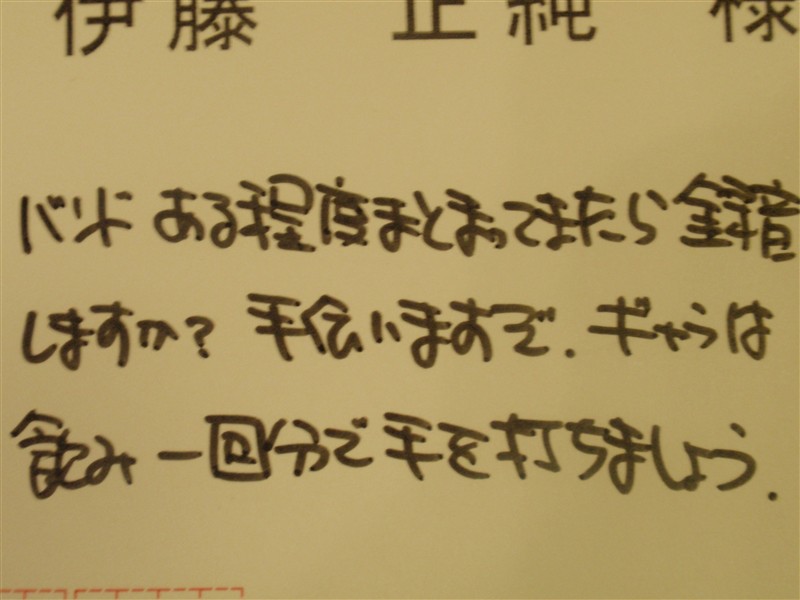 伊藤 正純 様
バンド ある程度まとまってきたら録音
しますか? 手伝いますぞ. ギャラは
飲み一回分で手を打ちましょう.